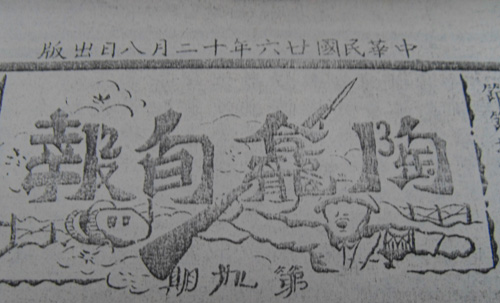 中華民國廿六年十二月八日出版
陶龕旬報
第期